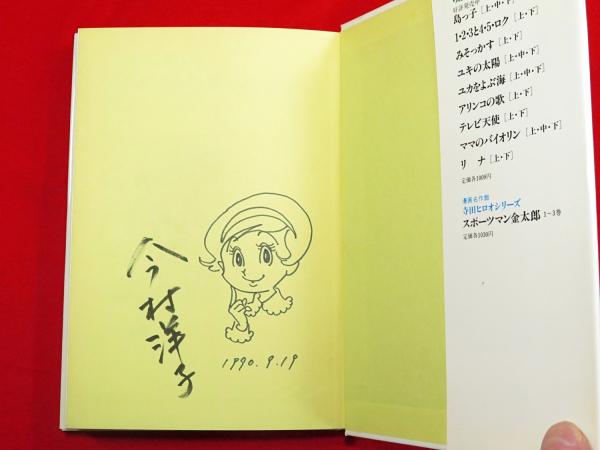 今村洋子
1990.9.19
好評発売中
島っ子[上・中・下]
1・2・3と4・5・ロク[上・下]
みそっかす[上・下]
ユキの太陽[上・中・下]
ユカをよぶ海[上・中・下]
アリンコの歌[上・下]
テレビ天使[上・下]
ママのバイオリン[上・中・下]
リナ[上・下]
定価各1000円
漫画名作館
寺田ヒロオシリーズ
スポーツマン金太郎 1〜3巻
定価各1030円